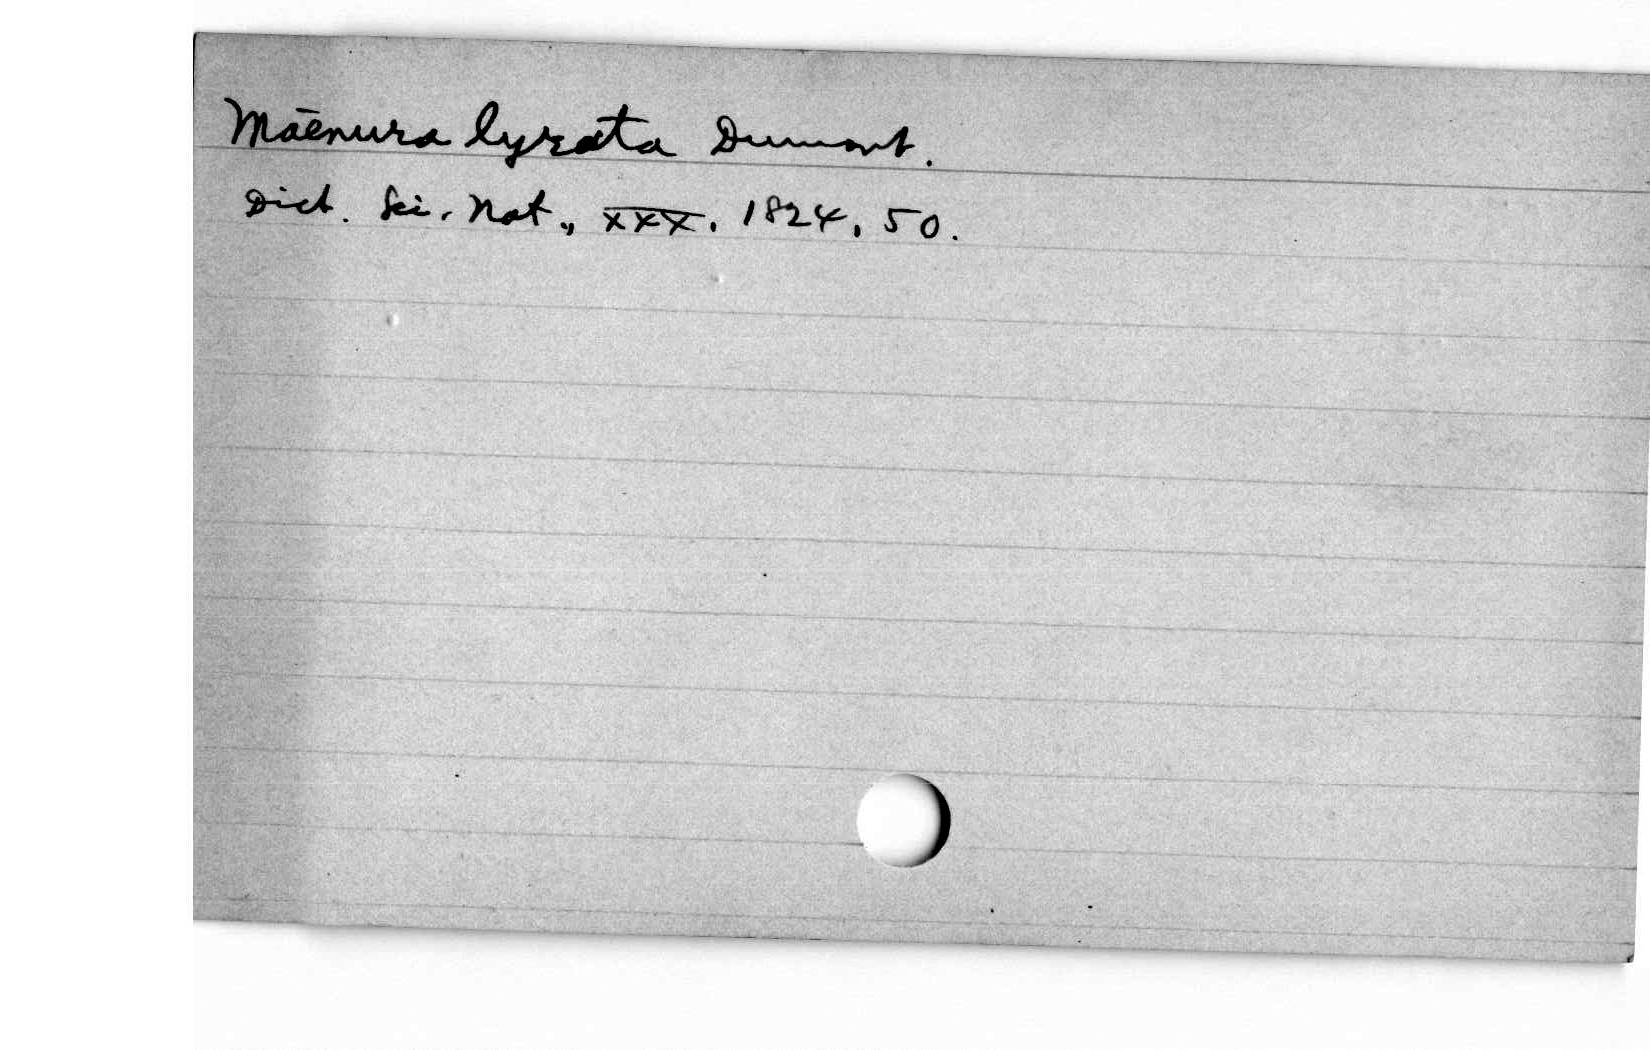 Maēnura lyrata Dumont.
Dict. Sci. Nat., XXX, 1824, 50.